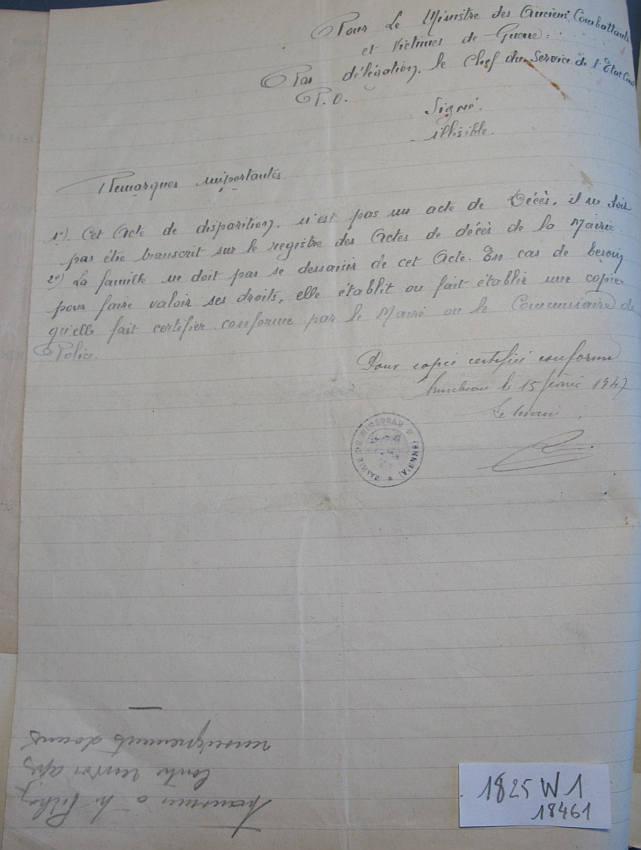 Pour Le Ministre des Anciens Combattants
et Victimes de Guerre:
Par délégation, le Chef du Service de l'Etat Civil
P.O.
Signé.
illisible.
Remarques importantes
1°) Cet Acte de disparition, n'est pas un acte de Décès, il ne doit
pas être transcrit sur le registre des Actes de décès de la Mairie
2°) La famille ne doit pas se dessaisir de cet Acte. En cas de besoin
pour faire valoir ses droits, elle établit ou fait établir une copie
qu'elle fait certifier conforme par le Maire ou le Commissaire de
Police.
Pour copie certifiée conforme
Mirebeau le 15 février 1947
Le maire.
MAIRIE DE MIREBEAU (VIENNE)
Transmis à
contre renvoi après
renseignements donnés
1825 W 1
18461